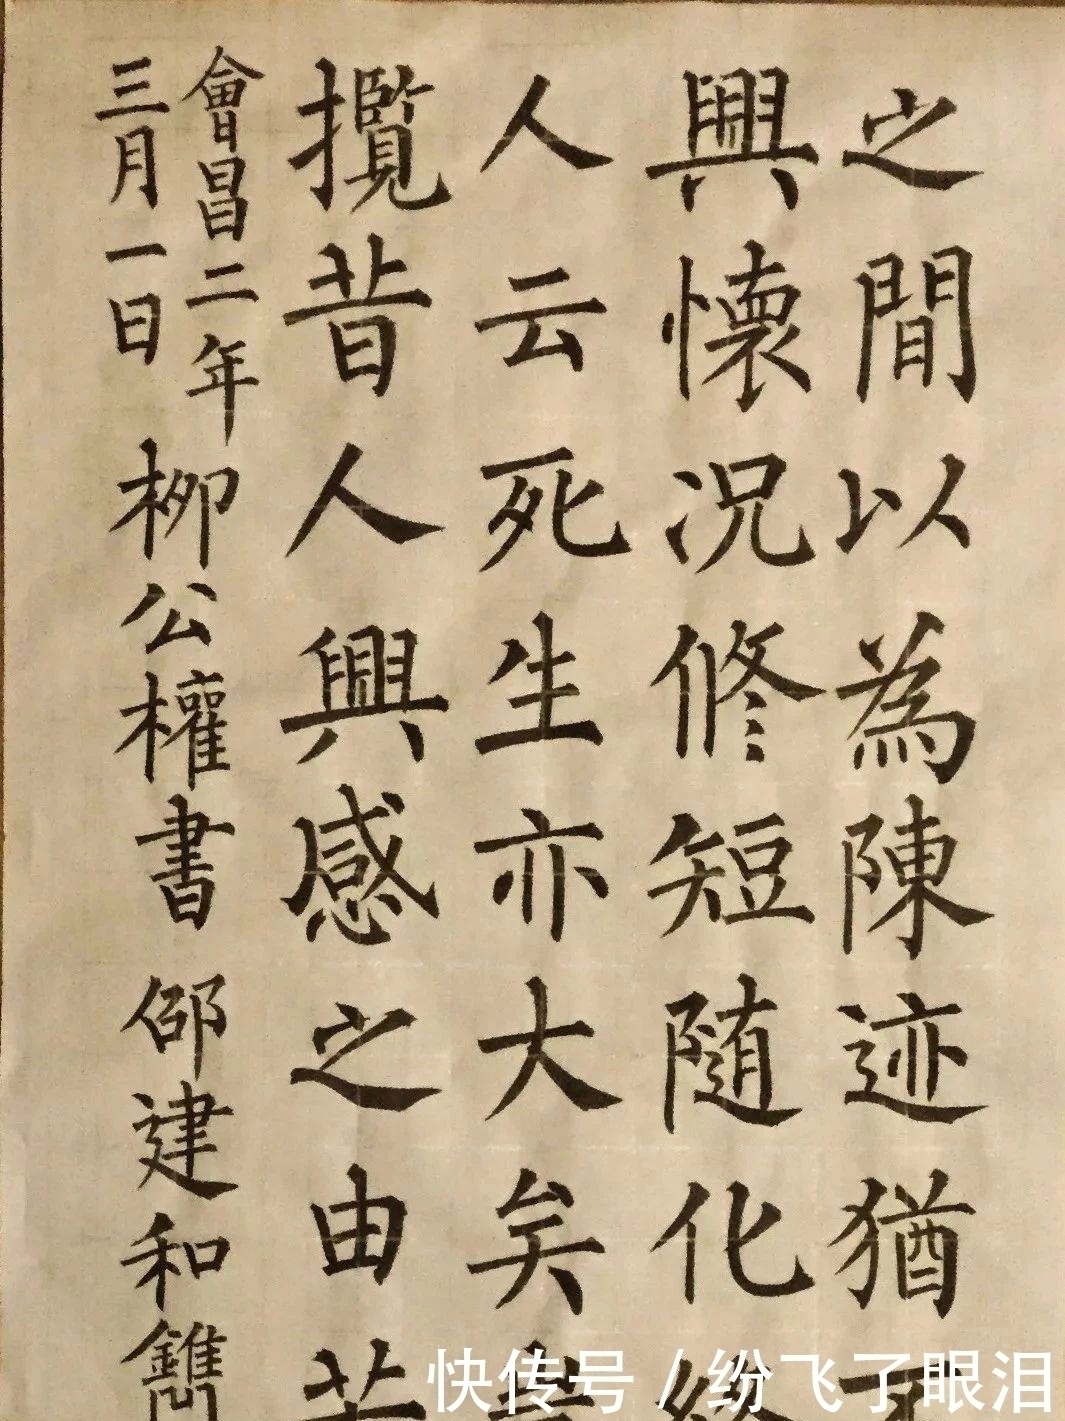 之間以為陳迹猶不
興懷况修短随化終
人云死生亦大矣
攬昔人興感之由若
會昌二年
三月一日
柳公權書 邵建和鐫
快传号/纷飞了眼泪